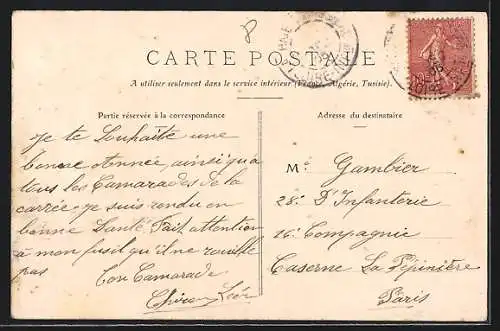 8
CARTE POSTALE
A utiliser seulement dans le service intérieur (France, Algérie, Tunisie).
Partie réservée à la correspondance
Je te Souhaite une
bonne annee, ainsi qu'a
tous les Camarades de la
carrée je suis rendu en
bonne Santé Fait attention
a mon fusil qu'il ne rouille
pas
Ton Camarade
Léon
Adresse du destinataire
Mr Gambier
28e D'Infanterie
16e Compagnie
Caserne La Pépinière
Paris